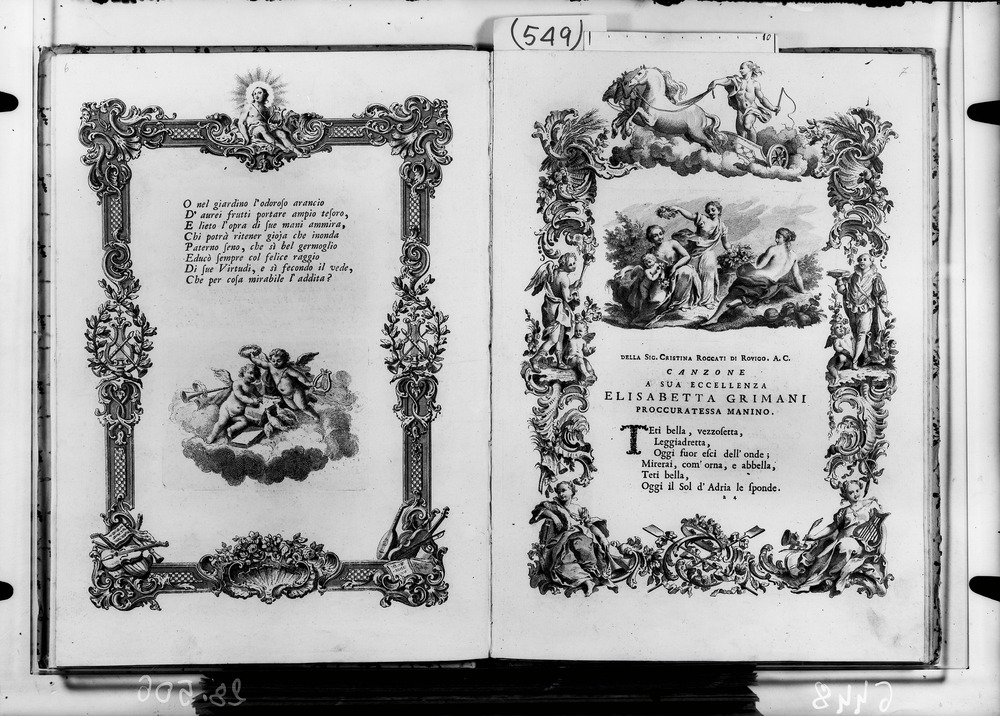 (549)
10
O nel giardino l'odoroſo arancio
D' aurei frutti portare ampio teſoro,
E lieto l'opra di ſue mani ammira,
Chi potrà ritener gioja che inonda
Paterno ſeno, che sì bel germoglio
Educò ſempre col felice raggio
Di ſue Virtudi, e sì fecondo il vede,
Che per coſa mirabile l' addita?
7
DELLA SIG. CRISTINA ROCCATI DI ROVIGO. A. C.
CANZONE
A SUA ECCELLENZA
ELISABETTA GRIMANI
PROCCURATESSA MANINO.
TEti bella, vezzoſetta,
Leggiadretta,
Oggi fuor eſci dell' onde;
Mirerai, com' orna, e abbella,
Teti bella,
Oggi il Sol d' Adria le ſponde.
a 4
28.506
6448